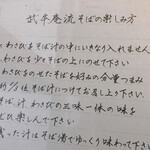 武平庵流そばの楽しみ方
わさびをそば汁の中にいきなり入れません
わさびを少々そばの上にのせて下さい
わさびをのせたそばを好みの分量つまみ
約 そば汁につけてお召し上り下さい。
そば汁 わさびの三味一体の味を
ぜひ楽しんで下さい
残った汁はそば湯でゆっくり味わって下さい